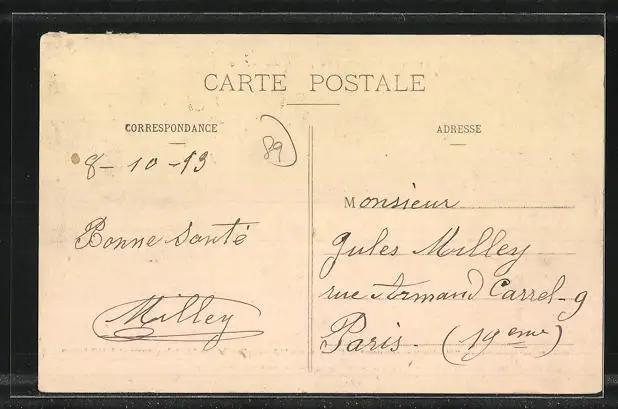 CARTE POSTALE
CORRESPONDANCE
89
8-10-13
Bonne Santé
Milley
ADRESSE
Monsieur
Jules Milley
rue Armand Carrel-9
Paris. (19eme)